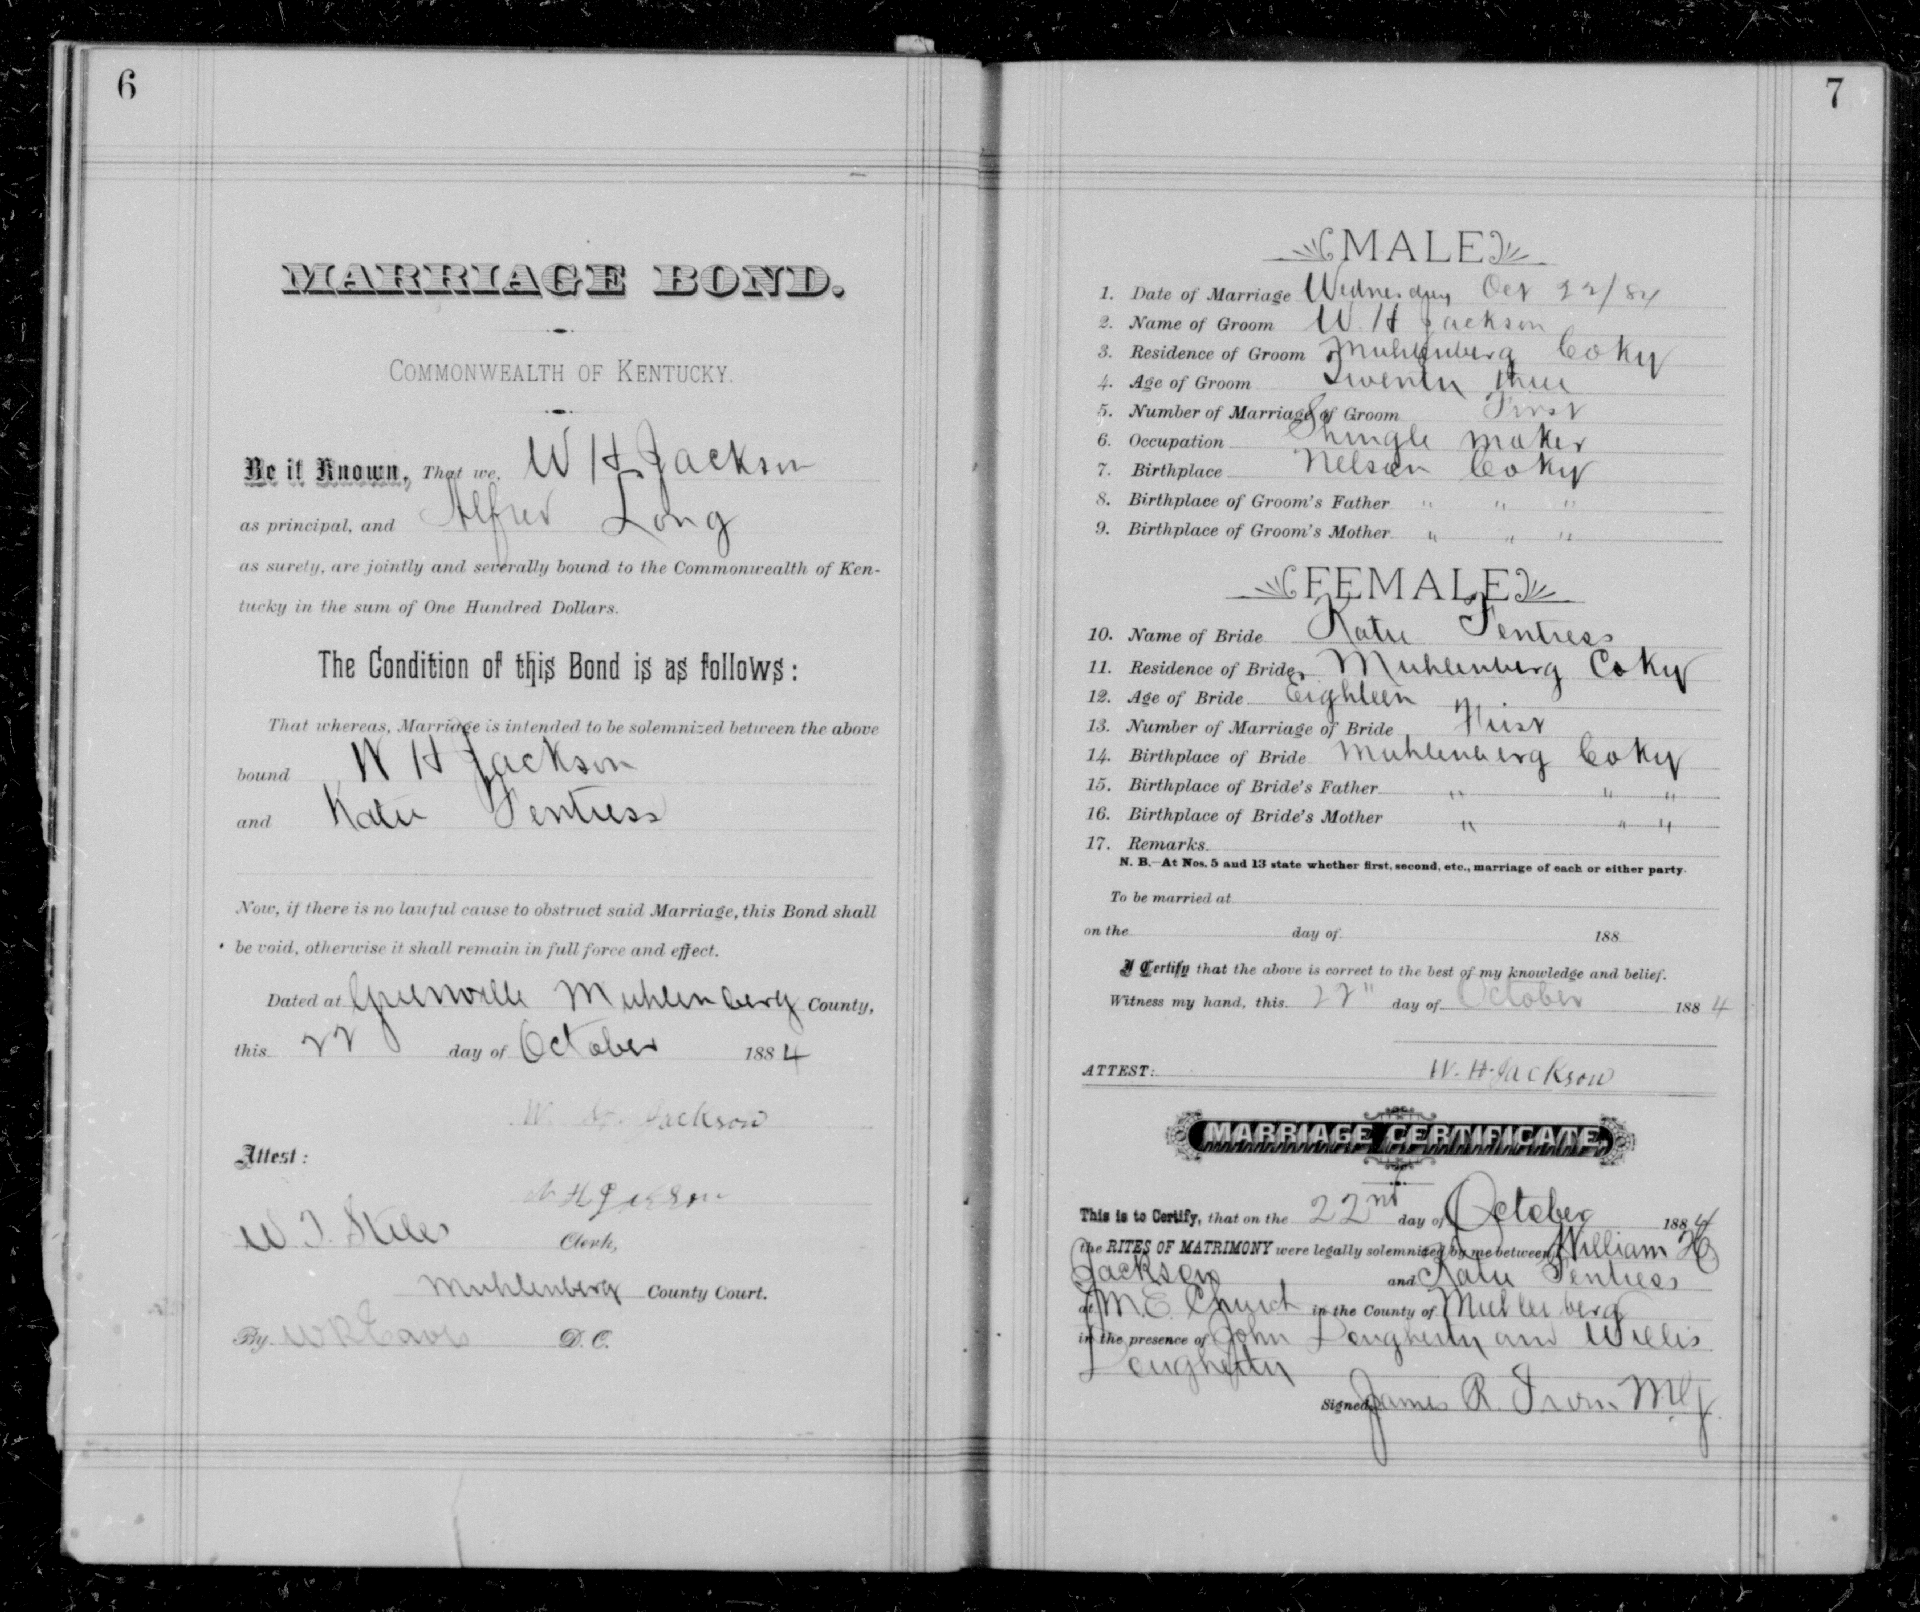 6
MARRIAGE BOND.
COMMONWEALTH OF KENTUCKY.
Be it Known, That we, W H Jackson
as principal, and Alfred Long
as surety, are jointly and severally bound to the Commonwealth of Ken-
tucky in the sum of One Hundred Dollars.
The Condition of this Bond is as follows:
That whereas, Marriage is intended to be solemnized between the above
bound W H Jackson
and Katie Fentress
Now, if there is no lawful cause to obstruct said Marriage, this Bond shall
be void, otherwise it shall remain in full force and effect.
Dated at Greenville Muhlenberg County,
this 22 day of October 1884
W. H. Jackson
Attest:
W H Jackson
W. T. Stiles Clerk,
Muhlenberg County Court.
By W R Eaves D. C.
7
MALE
1. Date of Marriage Wednesday Oct 22/84
2. Name of Groom W. H Jackson
3. Residence of Groom Muhlenberg Co Ky
4. Age of Groom Twenty three
5. Number of Marriage of Groom First
6. Occupation Shingle maker
7. Birthplace Nelson Co Ky
8. Birthplace of Groom's Father " " "
9. Birthplace of Groom's Mother " " "
FEMALE
10. Name of Bride Katie Fentress
11. Residence of Bride Muhlenberg Co Ky
12. Age of Bride Eighteen
13. Number of Marriage of Bride First
14. Birthplace of Bride Muhlenberg Co Ky
15. Birthplace of Bride's Father " " "
16. Birthplace of Bride's Mother " " "
17. Remarks
N. B.—At Nos. 5 and 13 state whether first, second, etc., marriage of each or either party.
To be married at
on the day of 188
I Certify that the above is correct to the best of my knowledge and belief.
Witness my hand, this 22" day of October 1884
ATTEST: W. H. Jackson
MARRIAGE CERTIFICATE.
This is to Certify, that on the 22nd day of October 1884
the RITES OF MATRIMONY were legally solemnized by me between William H
Jackson and Katie Fentress
at M. E. Church in the County of Muhlenberg
in the presence of John Dougherty and Willis
Dougherty
Signed James R. Irvin M.G.